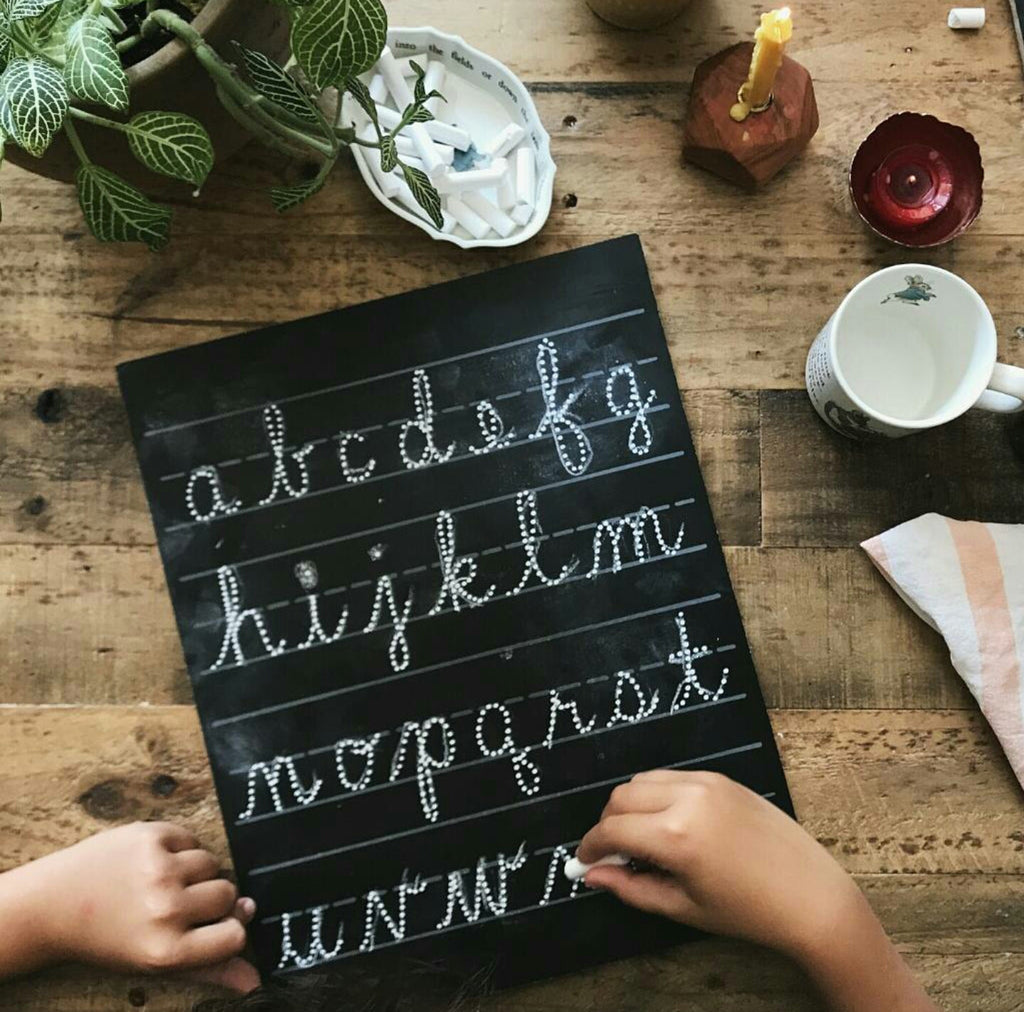 into the fields or down the
a b c d e f g
h i j k l m
n o p q r s t
u v w